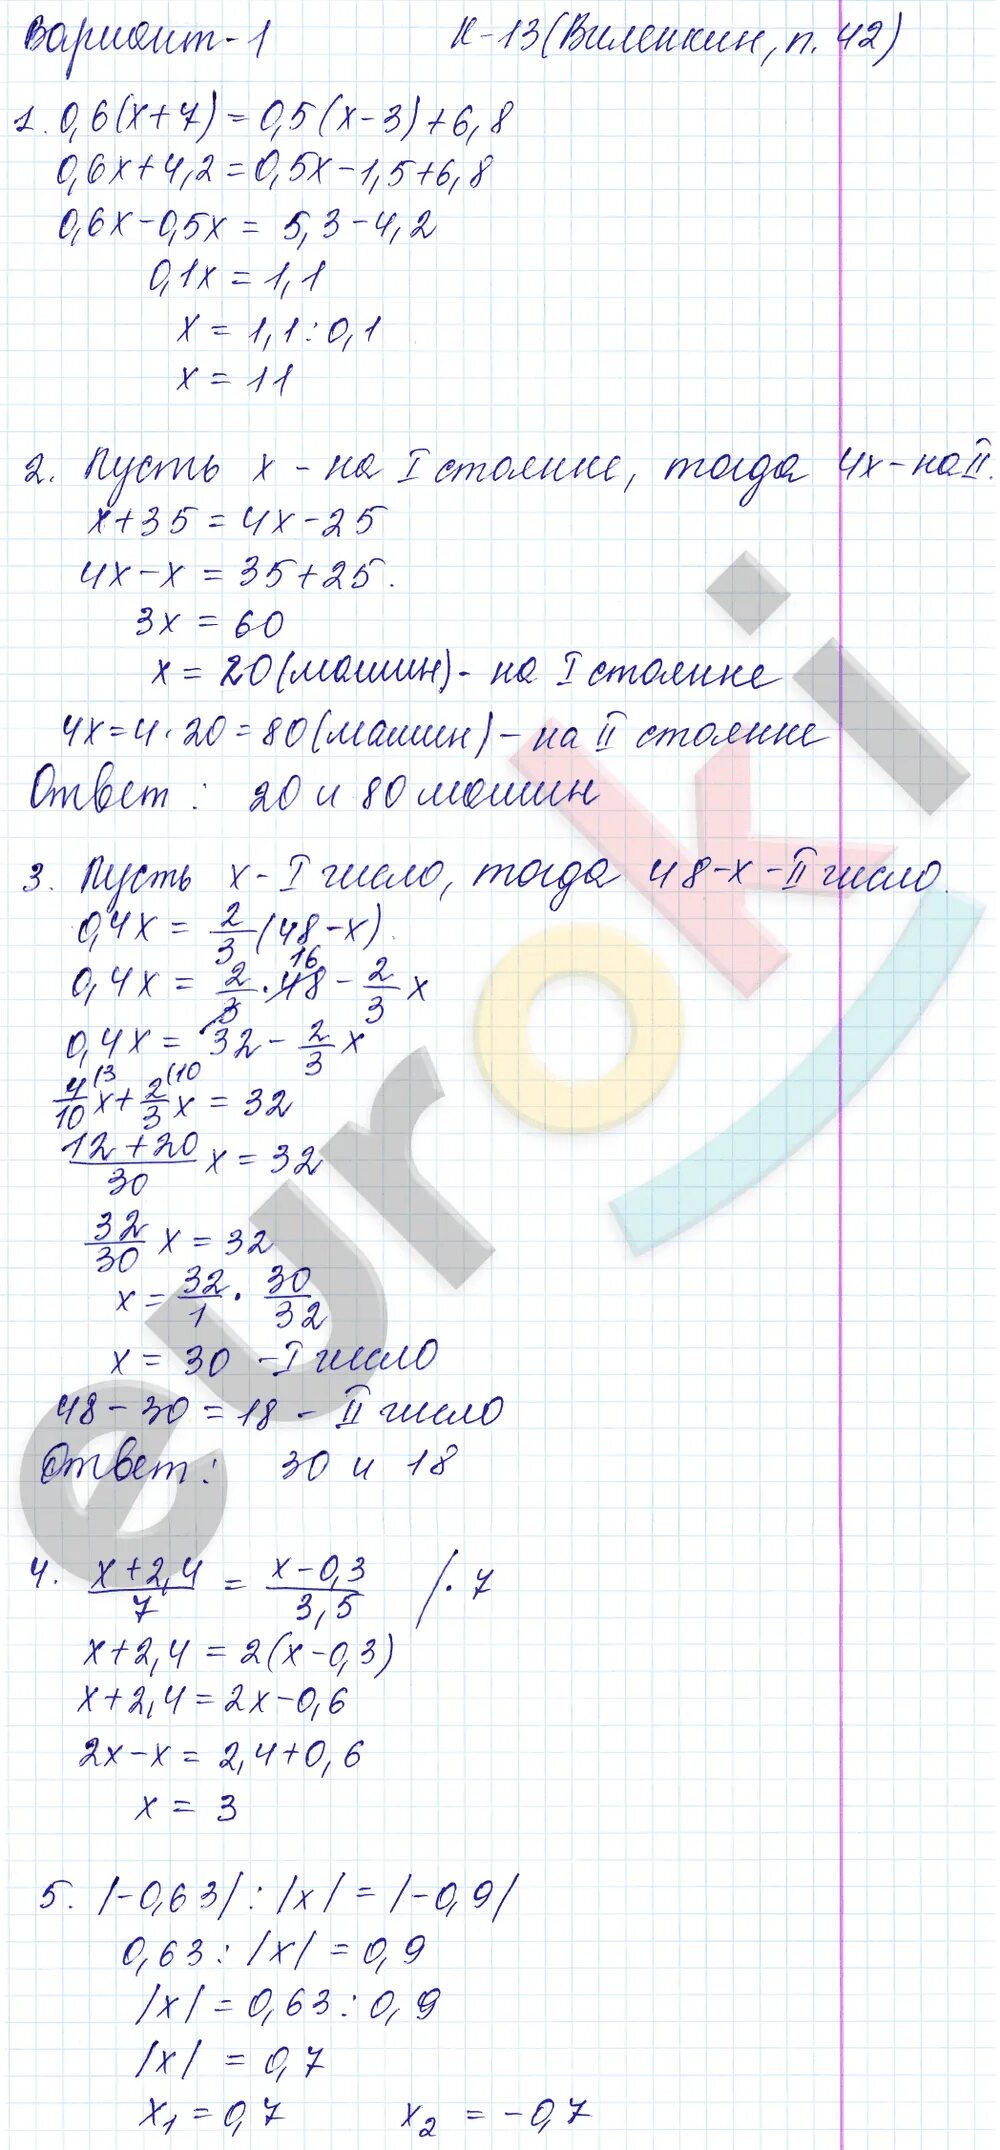 Вариант-1 К-13(Виленкин, п. 42)
1. 0,6(x+7)=0,5(x-3)+6,8
0,6x+4,2=0,5x-1,5+6,8
0,6x-0,5x = 5,3-4,2
0,1x = 1,1
x = 1,1:0,1
x = 11
2. Пусть x - на I стоянке, тогда 4x-на II.
x+35=4x-25
4x-x = 35+25.
3x = 60
x = 20(машин)- на I стоянке
4x=4·20=80(машин)-на II стоянке
Ответ: 20 и 80 машин
3. Пусть x-I число, тогда 48-x-II число.
0,4x = 2/3 (48-x).
16
0,4x = 2/3 · 48 - 2/3 x
0,4x = 32 - 2/3 x
4/10 (3 x + 2/3 (10 x = 32
12+20/30 x = 32
32/30 x = 32
x = 32/1 · 30/32
x = 30 -I число
48-30=18- II число
Ответ: 30 и 18
4. x+2,4/7 = x-0,3/3,5 /·7
x+2,4=2(x-0,3)
x+2,4=2x-0,6
2x-x = 2,4+0,6
x = 3
5. |-0,63|:|x|=|-0,9|
0,63:|x|=0,9
|x|=0,63:0,9
|x| = 0,7
x₁=0,7 x₂ = -0,7
euroki